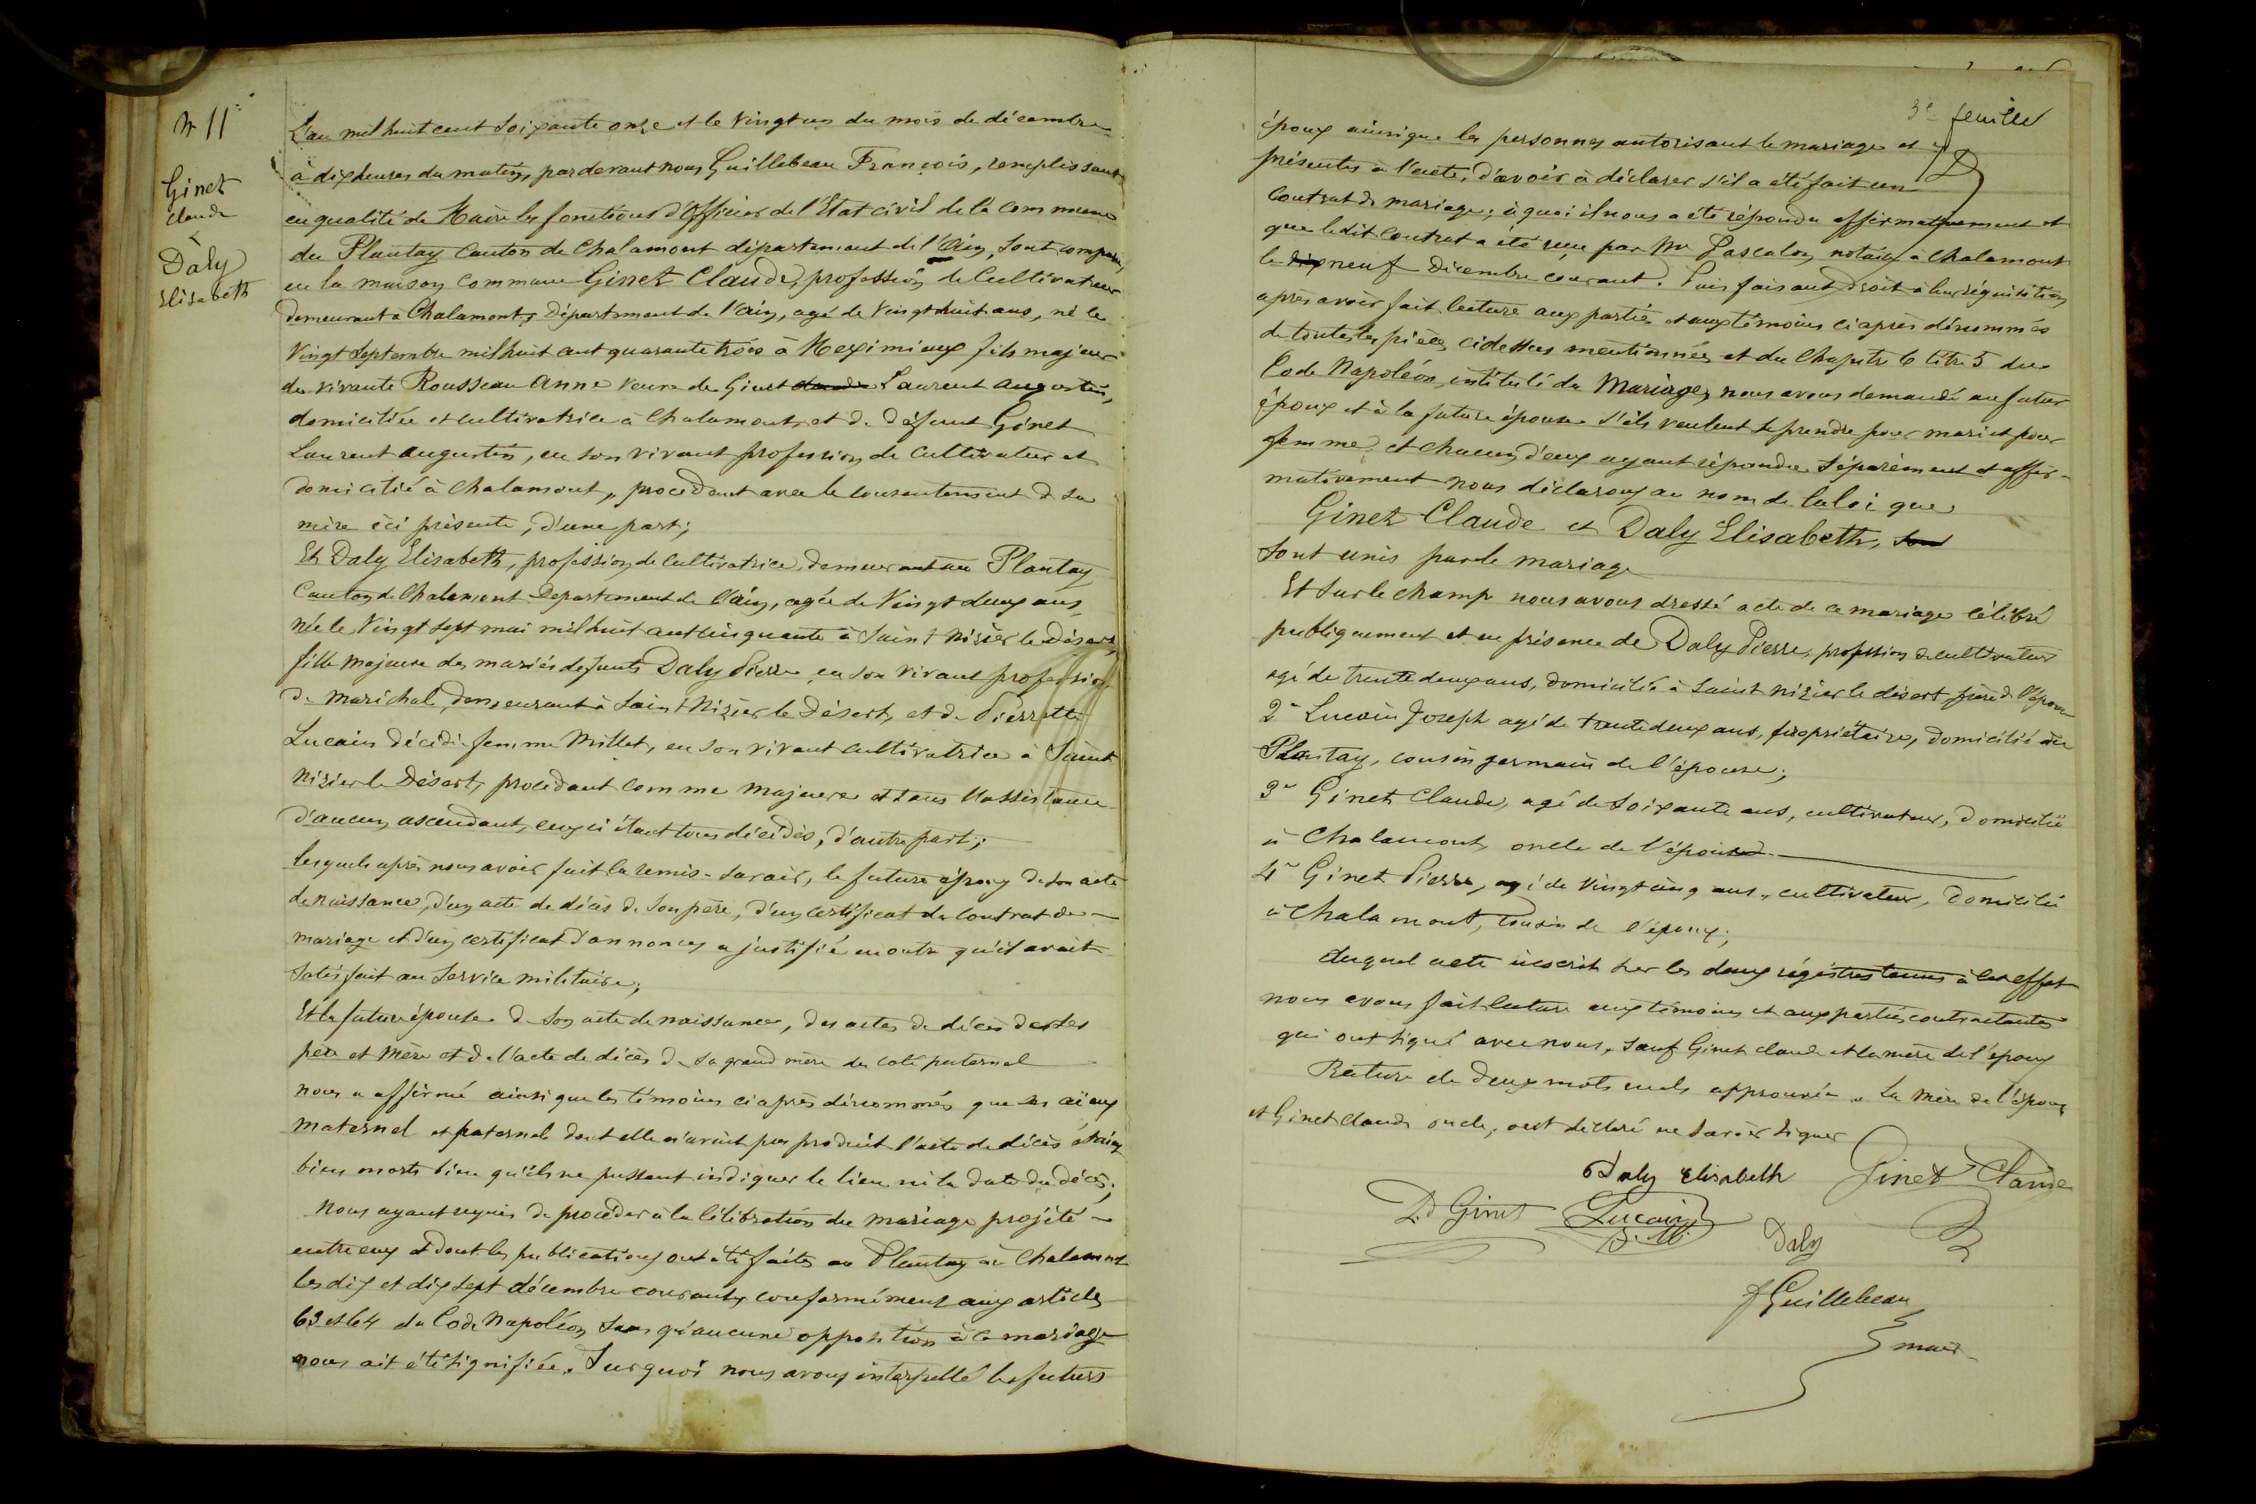 N 11
Ginet
Claude
&
Daly
Elisabeth
L'an mil huit cent soixante onze et le vingt un du mois de décembre
à dix heures du matin, pardevant nous Guillebeau François, remplissant
en qualité de Maire les fonctions d'Officier de l'Etat civil de la commune
du Plantay canton de Chalamont département de l'Ain, sont comparu,
en la maison commune Ginet Claude, profession de Cultivateur
demeurant à Chalamont, département de l'ain, agé de Vingt huit ans, né le
Vingt Septembre mil huit cent quarante trois à Meximieux fils majeur
de vivante Rousseau Anne veuve de Ginet Laurent Augustin,
domiciliée et cultivatrice à Chalamont, et de défunt Ginet
Laurent Augustin, en son vivant profession de Cultivateur et
domicilié à Chalamont, procédant avec le consentement de sa
mère ici présente, d'une part;
Et Daly Elisabeth, profession de Cultivatrice, demeurant au Plantay
Canton de Chalamont Département de l'Ain, agée de Vingt deux ans
née le Vingt sept mai mil huit cent cinquante à Saint Nizier le Désert,
fille majeure des mariés defunts Daly Pierre, en son vivant profession
de maréchal, demeurant à Saint Nizier le Désert, et de Pierrette
Lucain décédée femme Millet, en son vivant cultivatrice à Saint
Nizier le Désert, procédant comme majeure et sans l'assistance
d'aucun ascendant, ceux ci étant tous décédés, d'autre part;
Lesquels après nous avoir fait la remis - savoir, le future époux de son acte
de naissance, d'un acte de décès de son père, d'un certificat du Contrat de
mariage et d'un certificat d'annonces a justifié en outre qu'il avait
satisfait au service militaire;
Et la future épouse de son acte de naissance, des actes de décès de ses
père et mère et de l'acte de décès de sa grand mère du coté paternel
nous a affirmé ainsi que les témoins ci après dénommés que ses aïeux
maternel et paternel dont elle n'avait pas produit l'acte de décès étaien
bien morts bien qu'ils ne pussent indiquer le lieu ni la date du décès;
Nous ayant requis de procéder à la célébration du mariage projeté
entre eux et dont les publications ont été faites au Plantay à Chalamont
les dix et dix sept décembre courant, conformément aux articles
63 et 64 du Code Napoléon, sans qu'aucune opposition à ce mariage
nous ait été signifiée. Sur quoi nous avons interpellé les futurs
3e feuille
époux ainsi que les personnes autorisant le mariage et
présentes à l'acte, d'avoir à déclarer s'il a été fait un
Contrat de mariage; à quoi il nous a été répondu affirmativement et
que ledit Contrat a été reçu par Me Pascalon, notaire à Chalamont
le neuf Décembre courant. Puis faisant droit à leur réquisition
après avoir fait lecture aux parties et aux témoins ci après dénommés
de toutes les pièces cidessus mentionnées et du Chapitre 6 titre 5 du
Code Napoléon, intitulé du Mariage, nous avons demandé au futur
époux et à la future épouse s'ils veulent se prendre pour mari et pour
femme, et chacun d'eux ayant répondu séparément et affir-
mativement nous déclarons au nom de la loi que
Ginet Claude et Daly Elisabeth, son
sont unis par le mariage
Et sur le champ nous avons dressé acte de ce mariage célébré
publiquement et en présence de Daly Pierre, profession de cultivateur
agé de trente deux ans, domicilié à Saint nizier le désert, frère de l'épouse
2° Lucain Joseph agé de trente deux ans, propriétaire, domicilié au
Plantay, cousin germain de l'épouse;
3° Ginet Claude, agé de soixante ans, cultivateur, domicilié
à Chalamont, oncle de l'époux
4° Ginet Pierre, agé de vingt cinq ans, cultivateur, domicilié
à Chalamont, cousin de l'époux;
duquel acte inscrit sur les deux régistres tenus à cet effet
nous avons fait lecture aux témoins et aux parties contractantes
qui ont signé avec nous, sauf Ginet claude et la mère de l'époux
Rature de deux mots nuls approuvée. La mère de l'époux
et Ginet claude oncle, ont déclaré ne savoir signer
Daly Elisabeth Ginet Claude
P. Ginet Lucain Daly
f Guillebeau
maire